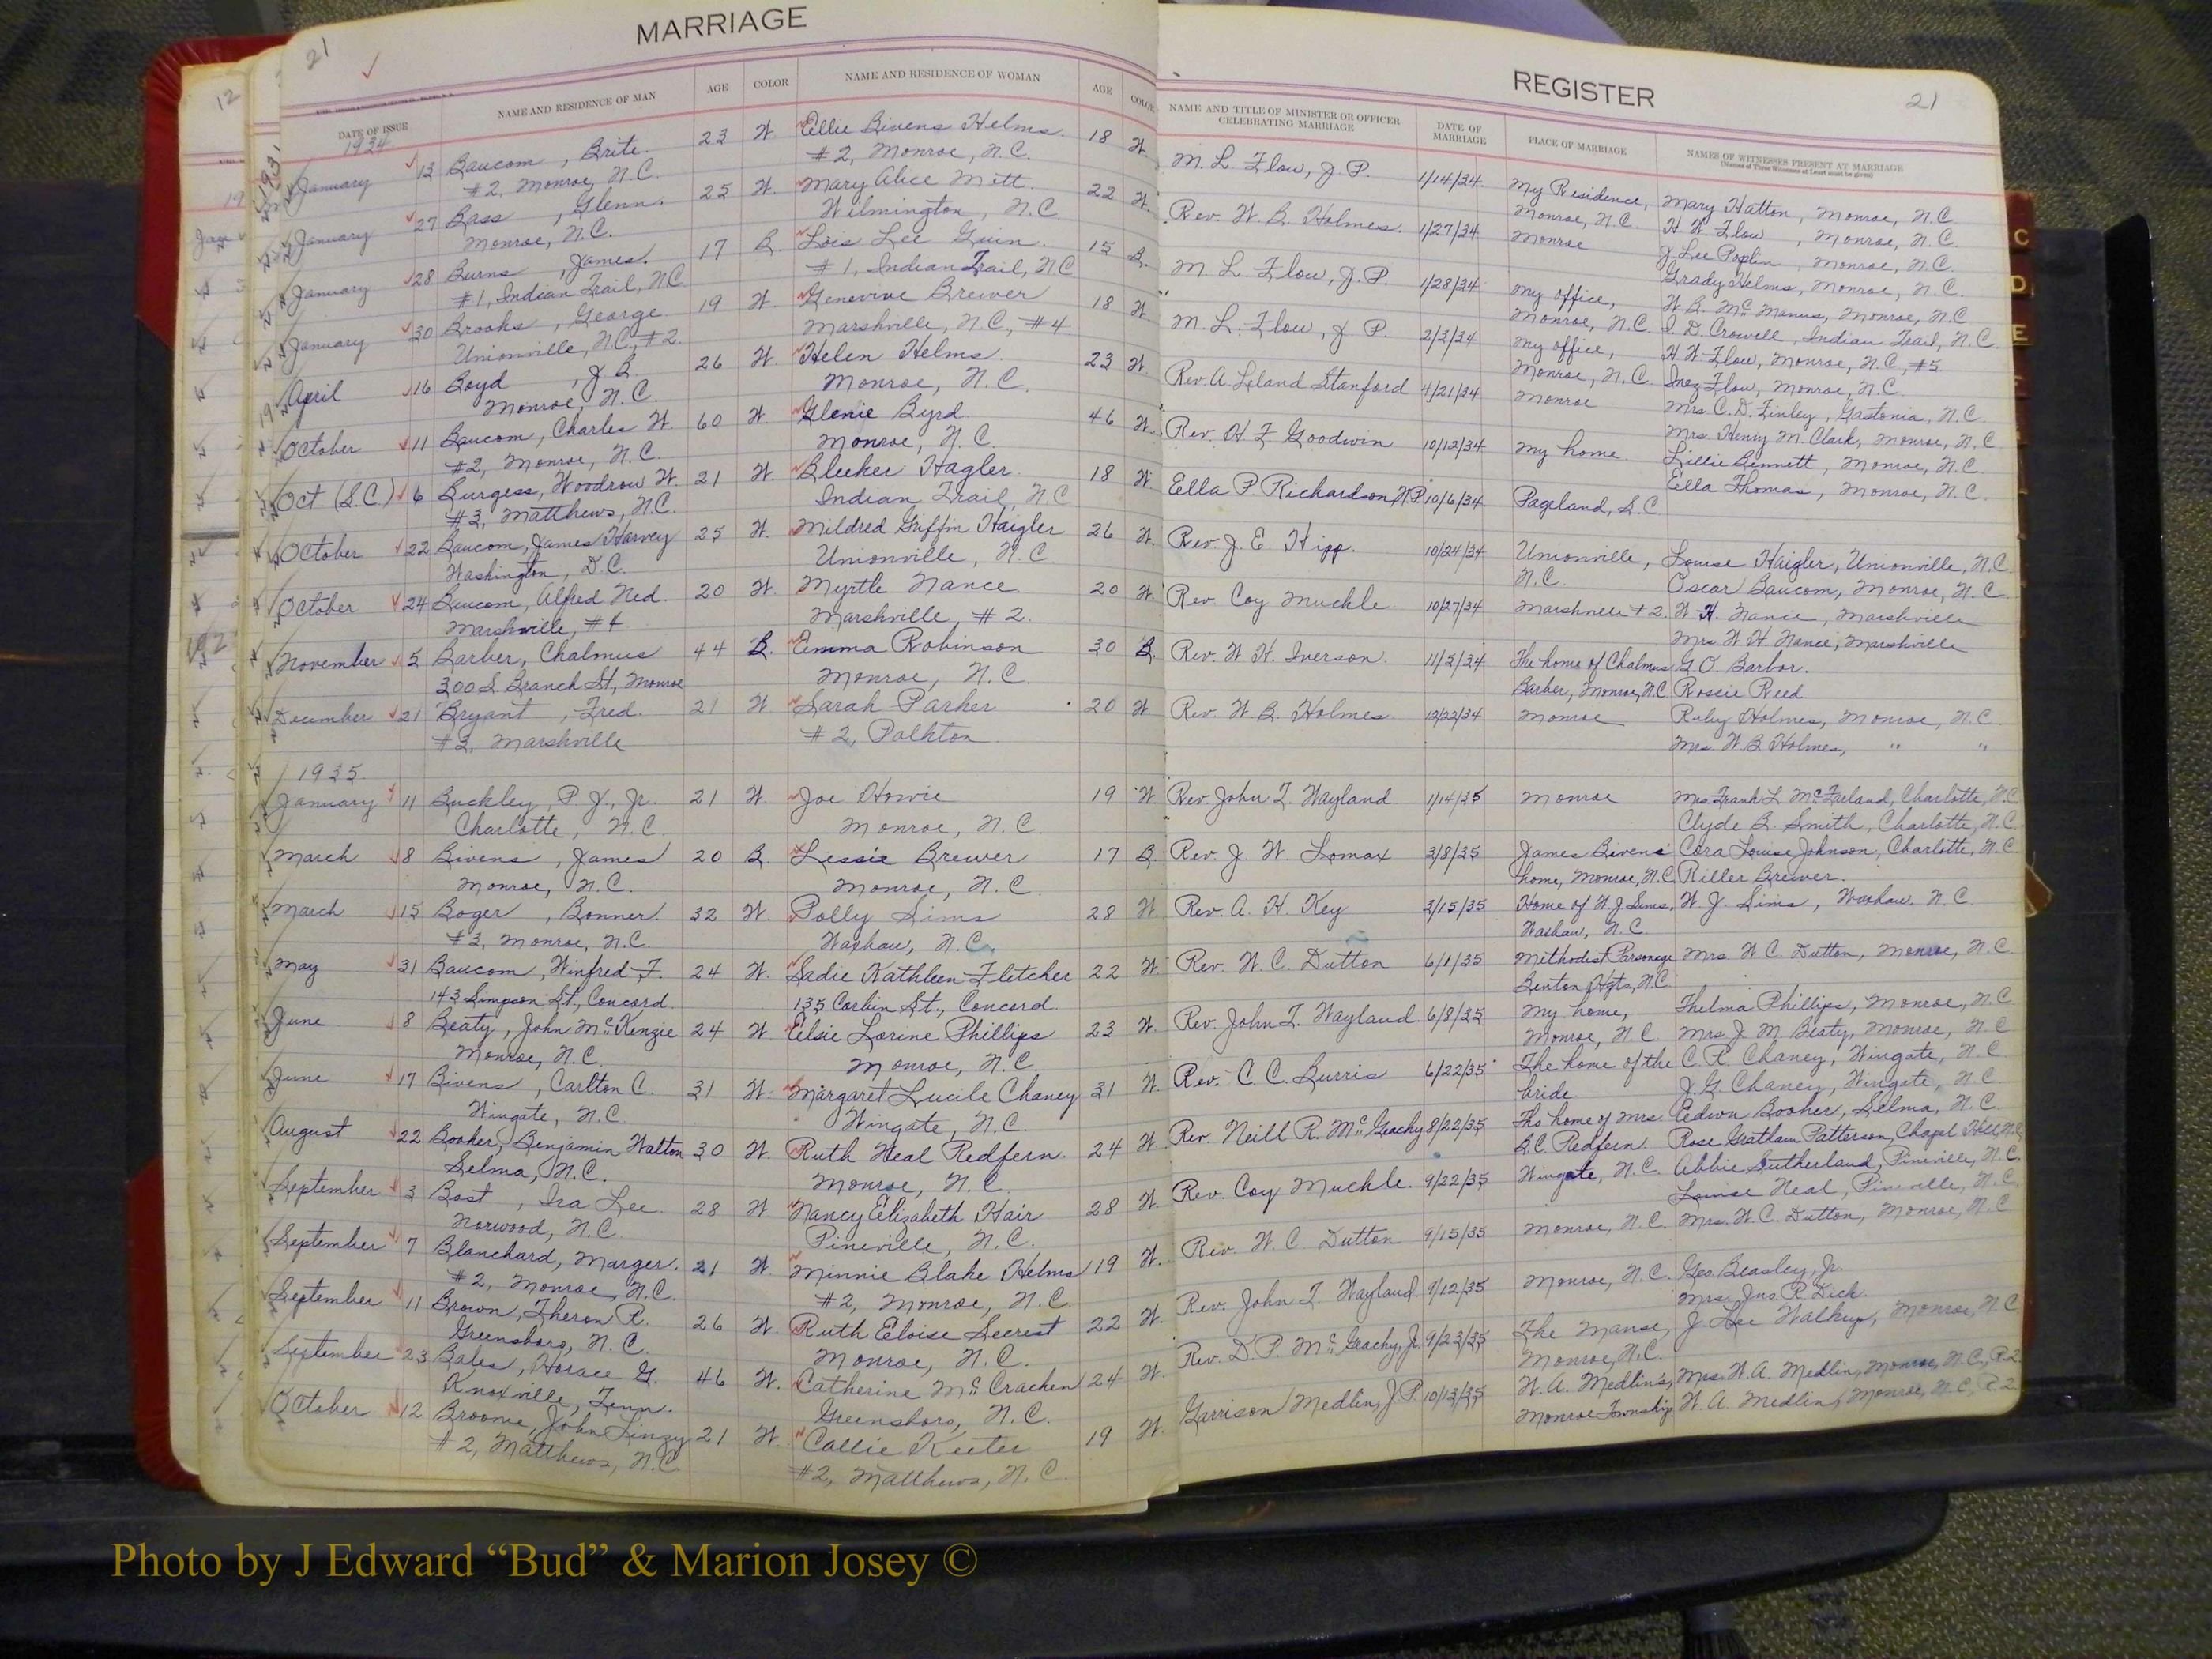 MARRIAGE
21
NAME AND RESIDENCE OF MAN
AGE
COLOR
NAME AND RESIDENCE OF WOMAN
AGE
COLOR
DATE OF ISSUE
1934
January 13 Baucom, Brite. 23 W. Ellie Bivens Helms. 18 W.
#2, Monroe, N.C. #2, Monroe, N.C.
January 27 Bass, Glenn. 25 W. Mary Alice Mott 22 W.
Monroe, N.C. Wilmington, N.C.
January 28 Burns, James. 17 B. Lois Lee Guin. 15 B.
#1, Indian Trail, N.C. #1, Indian Trail, N.C.
January 30 Brooks, George 19 W. Genevive Brewer 18 W.
Unionville, N.C., #2. Marshville, N.C., #4
April 16 Boyd, J. B. 26 W. Helen Helms. 23 W.
Monroe, N.C. Monroe, N.C.
October 11 Baucom, Charles W. 60 W. Glenie Byrd. 46 W.
#2, Monroe, N.C. Monroe, N.C.
Oct (S.C.) 6 Burgess, Woodrow W. 21 W. Bleeker Hagler. 18 W.
#3, Matthews, N.C. Indian Trail, N.C.
October 22 Baucom, James Harvey 25 W. Mildred Griffin Haigler 26 W.
Washington, D.C. Unionville, N.C.
October 24 Baucom, Alfred Ned. 20 W. Myrtle Nance 20 W.
Marshville, #4 Marshville, #2.
November 5 Barber, Chalmus 44 B. Emma Robinson 30 B.
300 S. Branch St, Monroe Monroe, N.C.
December 21 Bryant, Fred. 21 W. Sarah Parker 20 W.
#3, Marshville #2, Polkton
1935
January 11 Buckley, P. J., Jr. 21 W. Joe Howie 19 W.
Charlotte, N.C. Monroe, N.C.
March 8 Bivens, James 20 B. Lessie Brewer 17 B.
Monroe, N.C. Monroe, N.C.
March 15 Boger, Bonner. 32 W. Polly Sims 28 W.
#3, Monroe, N.C. Waxhaw, N.C.
May 31 Baucom, Winfred F. 24 W. Sadie Kathleen Fletcher 22 W.
143 Simpson St., Concord. 135 Corbin St., Concord.
June 8 Beaty, John McKenzie 24 W. Elsie Lorine Phillips 23 W.
Monroe, N.C. Monroe, N.C.
June 17 Bivens, Carlton C. 31 W. Margaret Lucile Chaney 31 W.
Wingate, N.C. Wingate, N.C.
August 22 Booker, Benjamin Walton 30 W. Ruth Neal Redfern. 24 W.
Selma, N.C. Monroe, N.C.
September 3 Bost, Ira Lee. 28 W. Nancy Elizabeth Hair 28 W.
Norwood, N.C. Pineville, N.C.
September 7 Blanchard, Marger. 21 W. Minnie Blake Helms 19 W.
#2, Monroe, N.C. #2, Monroe, N.C.
September 11 Brown, Theron R. 26 W. Ruth Eloise Secrest 22 W.
Greensboro, N.C. Monroe, N.C.
September 23 Bales, Horace G. 46 W. Catherine McCracken 24 W.
Knoxville, Tenn. Greensboro, N.C.
October 12 Broome, John Linzy 21 W. Callie Keeter 19 W.
#2, Matthews, N.C. #2, Matthews, N.C.
REGISTER
21
NAME AND TITLE OF MINISTER OR OFFICER CELEBRATING MARRIAGE
DATE OF MARRIAGE
PLACE OF MARRIAGE
NAMES OF WITNESSES PRESENT AT MARRIAGE
(Names of Three Witnesses at Least must be given)
M. L. Flow, J. P. 1/14/34. My Residence, Mary Hatton, Monroe, N.C.
Monroe, N.C. H. W. Flow, Monroe, N.C.
Rev. W. B. Holmes. 1/27/34 Monroe J. Lee Poplin, Monroe, N.C.
Grady Helms, Monroe, N.C.
M. L. Flow, J. P. 1/28/34 My office, W. B. McManus, Monroe, N.C.
Monroe, N.C. I. D. Crowell, Indian Trail, N.C.
M. L. Flow, J. P. 2/3/34 My office, H. W. Flow, Monroe, N.C., #5
Monroe, N.C. Inez Flow, Monroe, N.C.
Rev. A. Leland Stanford 4/21/34 Monroe Mrs. C. D. Finley, Gastonia, N.C.
Mrs. Henry M. Clark, Monroe, N.C.
Rev. H F Goodwin 10/12/34 My home Lillie Bennett, Monroe, N.C.
Ella Thomas, Monroe, N.C.
Ella P Richardson, N.P. 10/6/34 Pageland, S.C.
Rev. J. E. Hipp. 10/24/34 Unionville, Louise Haigler, Unionville, N.C.
N.C. Oscar Baucom, Monroe, N.C.
Rev. Coy Muckle 10/27/34 Marshville #2. W. H. Nance, Marshville
Mrs. W. H. Nance, Marshville
Rev. W. H. Iverson. 11/5/34 The home of Chalmus G. O. Barbor.
Barber, Monroe, N.C. Roscie Reed
Rev. W. B. Holmes. 12/22/34 Monroe Ruby Holmes, Monroe, N.C.
Mrs. W. B. Holmes, " "
Rev. John T. Wayland 1/14/35 Monroe Mrs. Frank L. McFarland, Charlotte, N.C.
Clyde B. Smith, Charlotte, N.C.
Rev. J. W. Lomax 3/8/35 James Bivens' Cora Louise Johnson, Charlotte, N.C.
home, Monroe, N.C. Riller Brewer.
Rev. A. H Key 3/15/35 Home of W. J. Sims, W. J. Sims, Waxhaw. N.C.
Waxhaw, N.C.
Rev. W. C. Dutton 6/1/35 Methodist Parsonage Mrs W C Dutton, Monroe, N.C.
Benton Hgts, N.C.
Rev. John T. Wayland 6/8/35 My home, Thelma Phillips, Monroe, N.C.
Monroe, N.C. Mrs J. M. Beaty, Monroe, N.C.
Rev. C. C. Burris 6/22/35 The home of the C. R. Chaney, Wingate, N.C.
bride J. G. Chaney, Wingate, N.C.
Rev. Neill R. McGeachy 8/22/35 The home of Mrs. Edwin Booker, Selma, N.C.
R.C. Redfern Rose Gratham Patterson, Chapel Hill, N.C.
Rev. Coy Muckle. 9/22/35 Wingate, N.C. Abbie Sutherland, Pineville, N.C.
Louise Neal, Pineville, N.C.
Rev. W. C Dutton 9/15/35 Monroe, N.C. Mrs. W. C. Dutton, Monroe, N.C.
Rev. John T. Wayland. 9/12/35 Monroe, N.C. Geo. Beasley, Jr.
Mrs. Jno. R. Dick
Rev. D. P. McGeachy, Jr. 9/23/35 The Manse, J. Lee Walkup, Monroe, N.C.
Monroe, N.C.
Garrison Medlin, J.P. 10/13/35 W. A. Medlin's, Mrs. W. A. Medlin, Monroe, N.C., R2
Monroe Township. W. A. Medlin, Monroe, N.C., R.2
C
D
E
12
Photo by J Edward “Bud” & Marion Josey ©